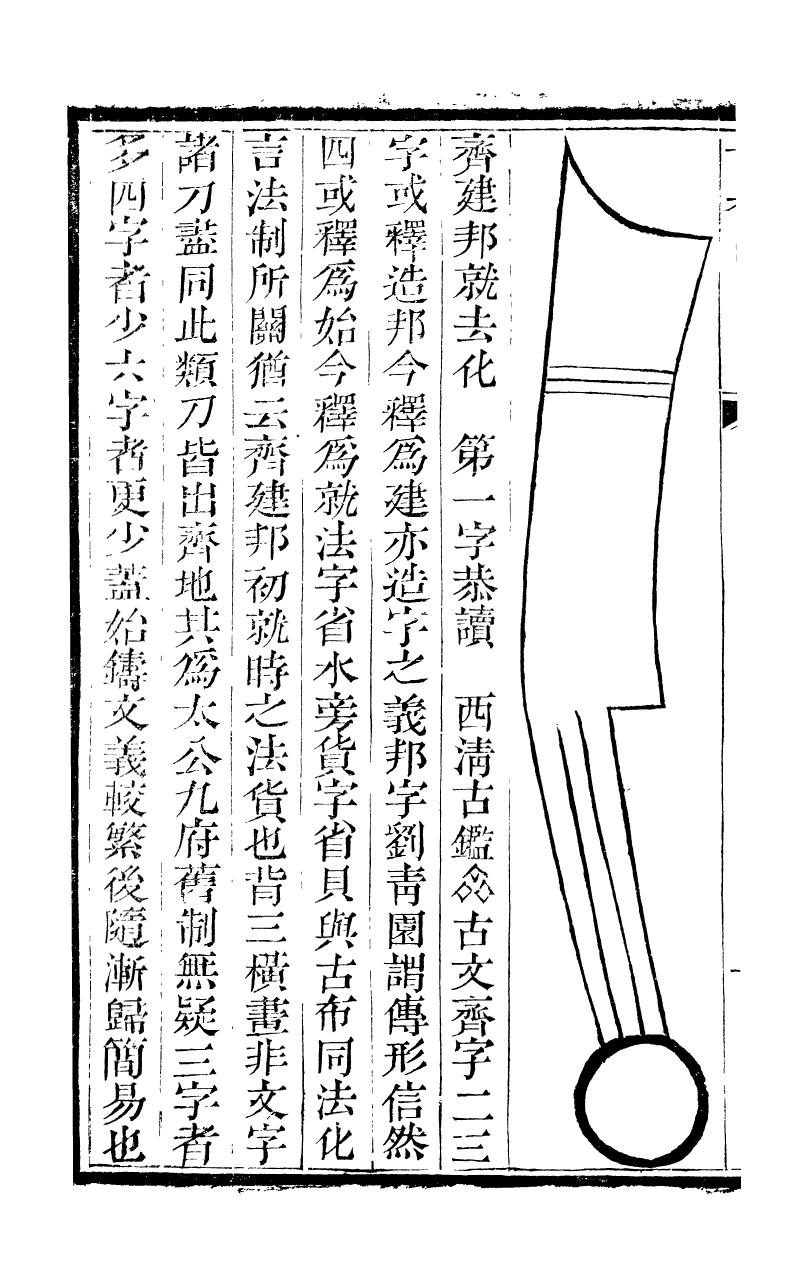 齊建邦就去化　第一字恭讀　西淸古鑑𠫼古文齊字二三
字或釋造邦今釋爲建亦造字之義邦字劉靑園謂傳形信然
四或釋爲始今釋爲就法字省水旁貨字省貝與古布同法化
言法制所關猶云齊建邦初就時之法貨也背三橫畫非文字
諸刀蓋同此類刀皆出齊地其爲太公九府舊制無疑三字者
多四字者少六字者更少蓋始鑄文義較繁後隨漸歸簡易也